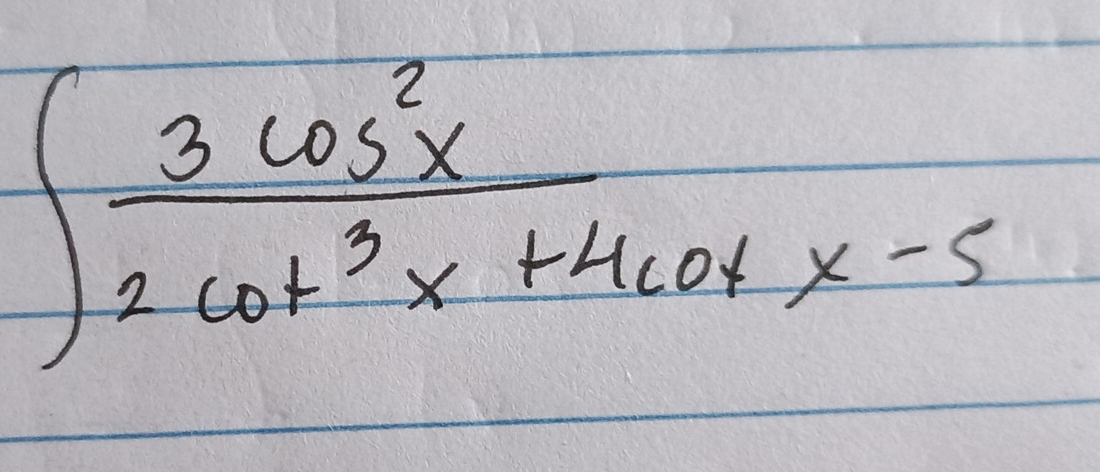 ∫ 3 cos²x
2 cot³ x + 4 cot x - 5